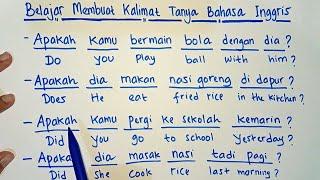 Belajar Membuat Kalimat Tanya Bahasa Inggris
- Apakah kamu bermain bola dengan dia?
Do you Play ball with him?
- Apakah dia makan nasi goreng di dapur?
Does He eat fried rice in the kitchen?
- Apakah kamu pergi ke sekolah kemarin?
Did you go to school yesterday?
- Apakah dia masak nasi tadi pagi?
Did she cook rice last morning?